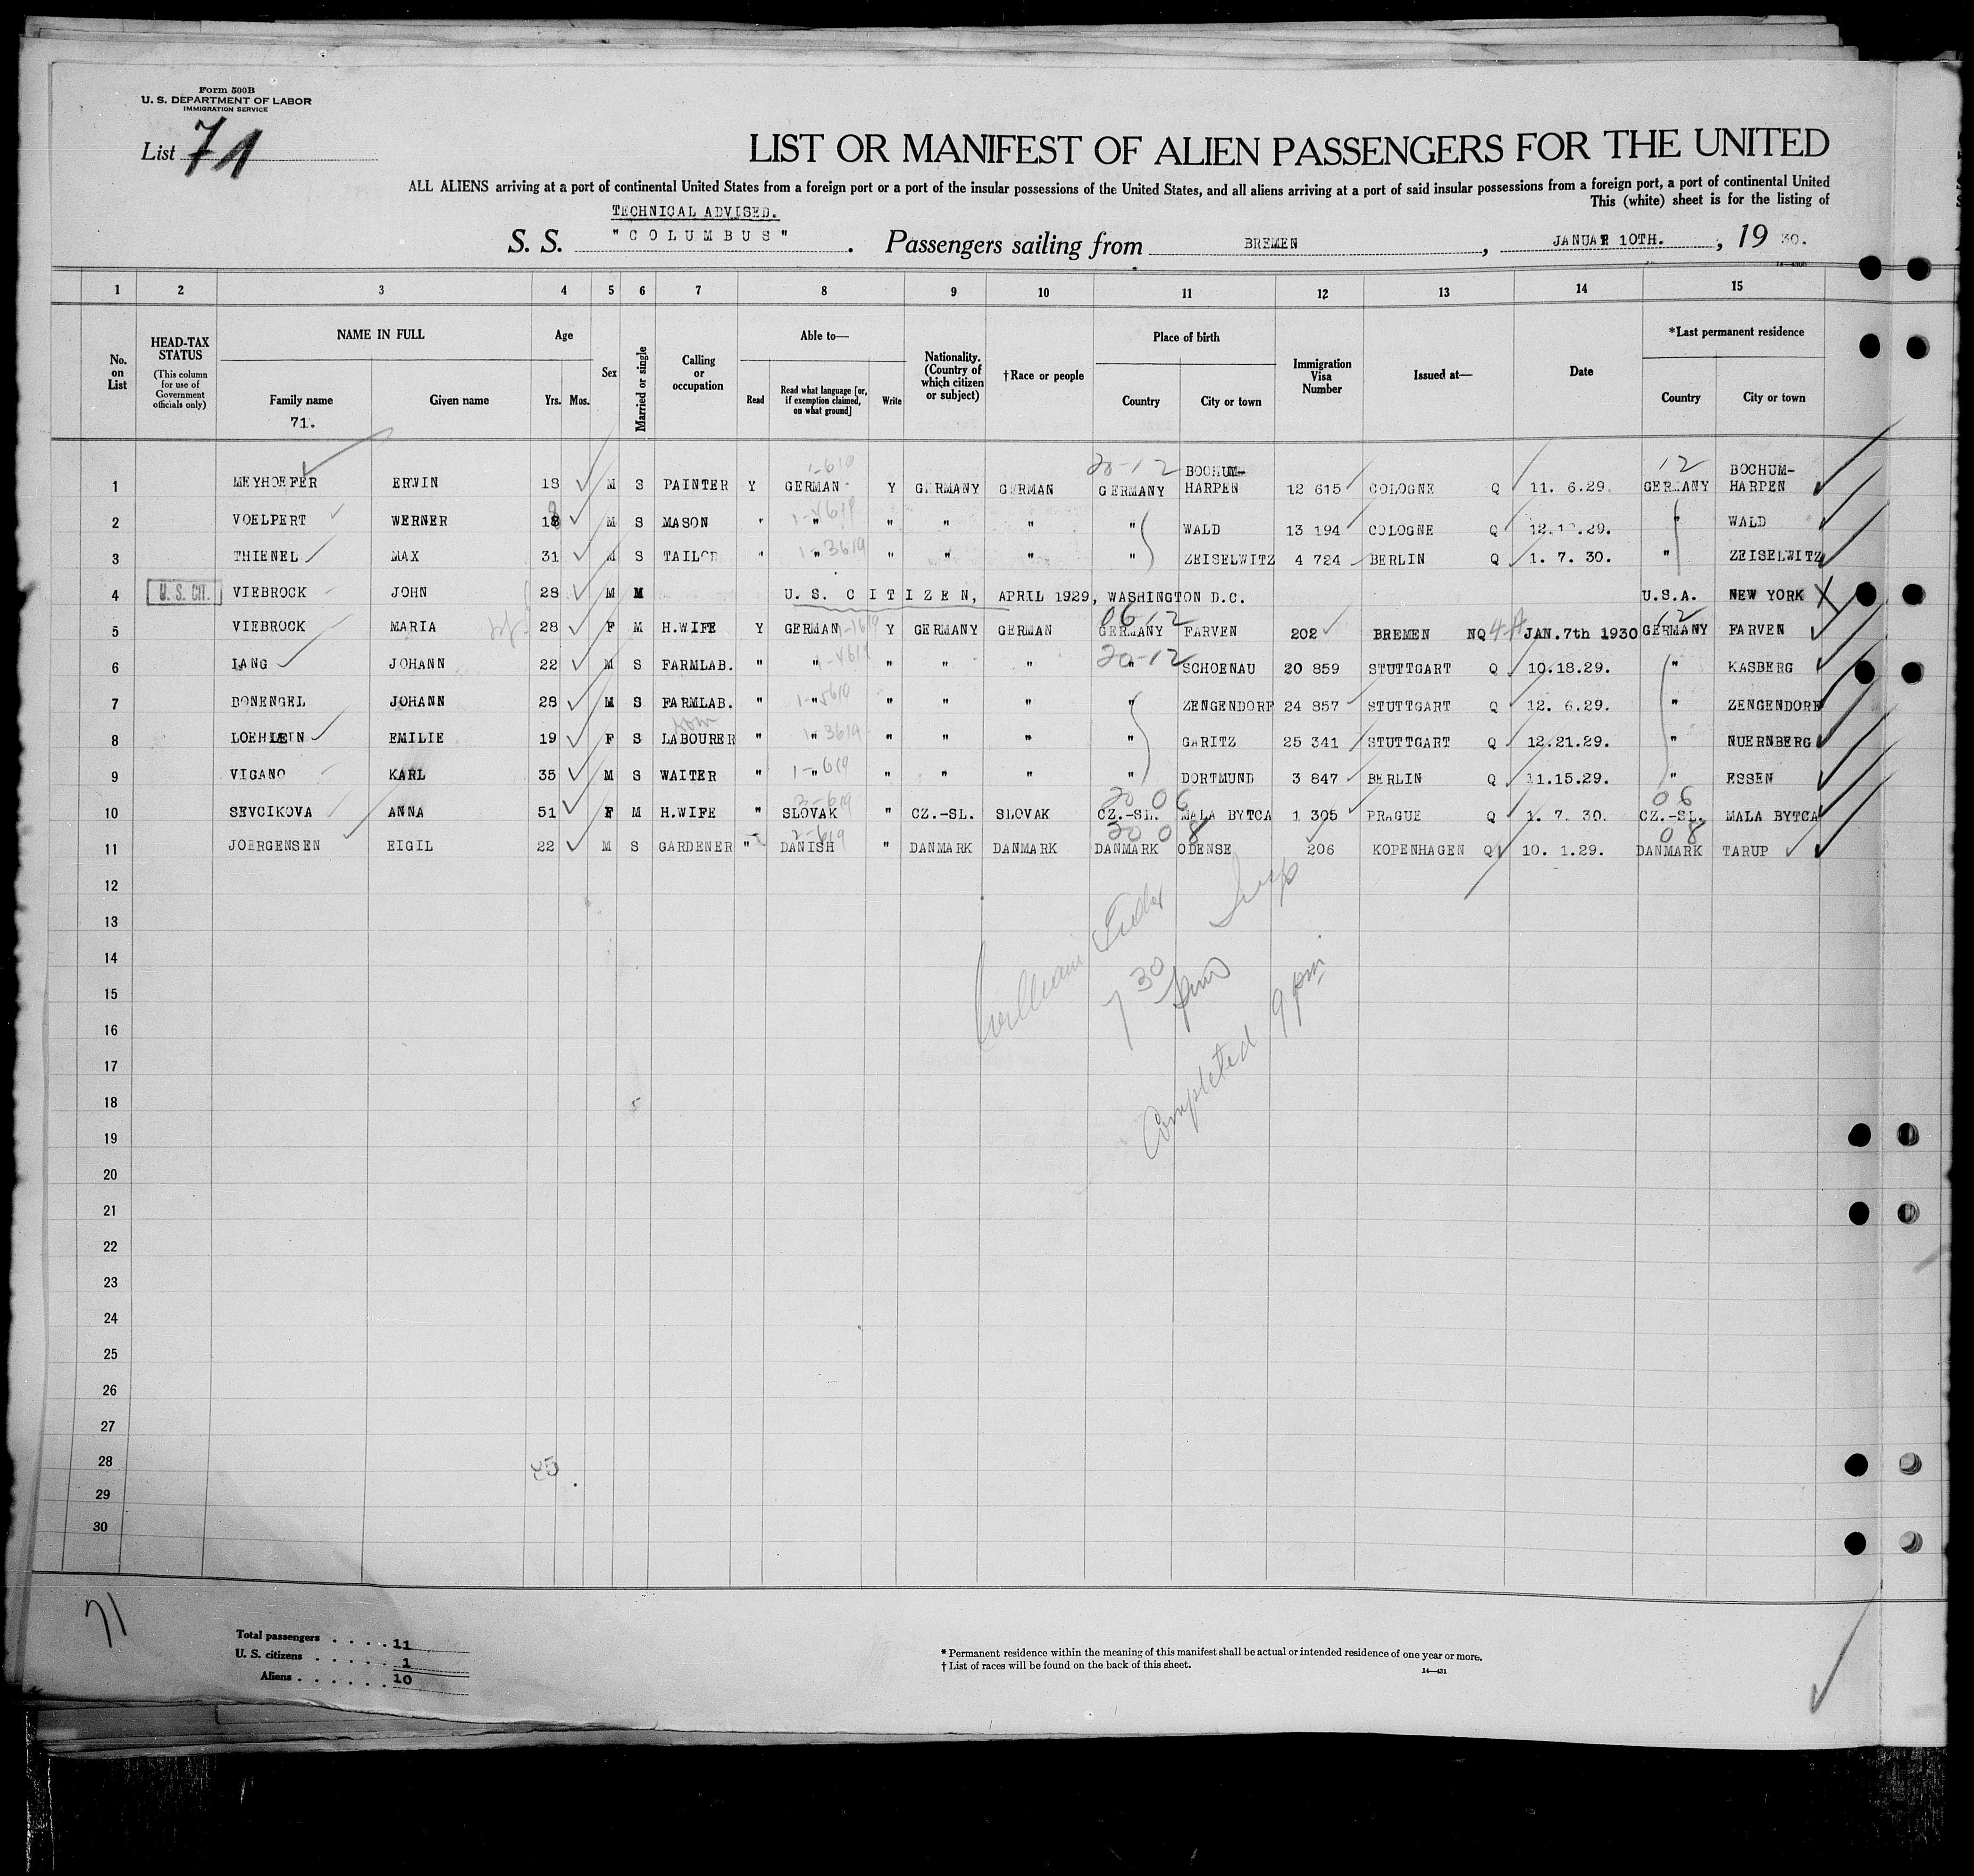 Form 500B
U. S. DEPARTMENT OF LABOR
IMMIGRATION SERVICE
List 71
LIST OR MANIFEST OF ALIEN PASSENGERS FOR THE UNITED
ALL ALIENS arriving at a port of continental United States from a foreign port or a port of the insular possessions of the United States, and all aliens arriving at a port of said insular possessions from a foreign port, a port of continental United
This (white) sheet is for the listing of
TECHNICAL ADVISED.
S. S. "COLUMBUS". Passengers sailing from BREMEN, JANUAR 10TH., 19 30.
1 2 3 4 5 6 7 8 9 10 11 12 13 14 15
No. on List
HEAD-TAX STATUS (This column for use of Government officials only)
NAME IN FULL
Family name Given name
71.
Age
Yrs. Mos.
Sex
Married or single
Calling or occupation
Able to—
Read
Read what language [or, if exemption claimed, on what ground]
Write
Nationality. (Country of which citizen or subject)
†Race or people
Place of birth
Country City or town
Immigration Visa Number
Issued at—
Date
*Last permanent residence
Country City or town
20-12 12
1 MEYHOEFER ERWIN 18 M S PAINTER Y GERMAN Y GERMANY GERMAN GERMANY BOCHUM-HARPEN 12 615 COLOGNE Q 11. 6.29. GERMANY BOCHUM-HARPEN
2 VOELPERT WERNER 18 M S MASON " " " " " " WALD 13 194 COLOGNE Q 12. .29. " WALD
3 THIENEL MAX 31 M S TAILOR " " " " " " ZEISELWITZ 4 724 BERLIN Q 1. 7. 30. " ZEISELWITZ
4 U. S. CIT. VIEBROCK JOHN 28 M M U. S. CITIZEN, APRIL 1929, WASHINGTON D.C. U.S.A. NEW YORK X
06 12 12
5 VIEBROCK MARIA 28 F M H.WIFE Y GERMAN Y GERMANY GERMAN GERMANY FARVEN 202 BREMEN NQ 4A JAN.7th 1930 GERMANY FARVEN
20-12
6 LANG JOHANN 22 M S FARMLAB. " " " " " " SCHOENAU 20 859 STUTTGART Q 10.18.29. " KASBERG
7 DONENGEL JOHANN 28 M S FARMLAB. " " " " " " ZENGENDORF 24 857 STUTTGART Q 12. 6.29. " ZENGENDORF
8 LOEHLEIN EMILIE 19 F S LABOURER " " " " " " GARITZ 25 341 STUTTGART Q 12.21.29. " NUERNBERG
9 VIGANO KARL 35 M S WAITER " " " " " " DORTMUND 3 847 BERLIN Q 11.15.29. " ESSEN
20 06 06
10 SEVCIKOVA ANNA 51 F M H.WIFE " SLOVAK " CZ.-SL. SLOVAK CZ.-SL. MALA BYTCA 1 305 PRAGUE Q 1. 7. 30. CZ.-SL. MALA BYTCA
20 08 08
11 JOERGENSEN EIGIL 22 M S GARDENER " DANISH " DANMARK DANMARK DANMARK ODENSE 206 KOPENHAGEN Q 10. 1.29. DANMARK TARUP
12
13
14
15
16
17
18
19
20
21
22
23
24
25
26
27
28
29
30
William Insp
7 30 pm
Completed 9 pm
71
Total passengers . . . . 11
U. S. citizens . . . . . 1
Aliens . . . . . . 10
* Permanent residence within the meaning of this manifest shall be actual or intended residence of one year or more.
† List of races will be found on the back of this sheet.
14—431